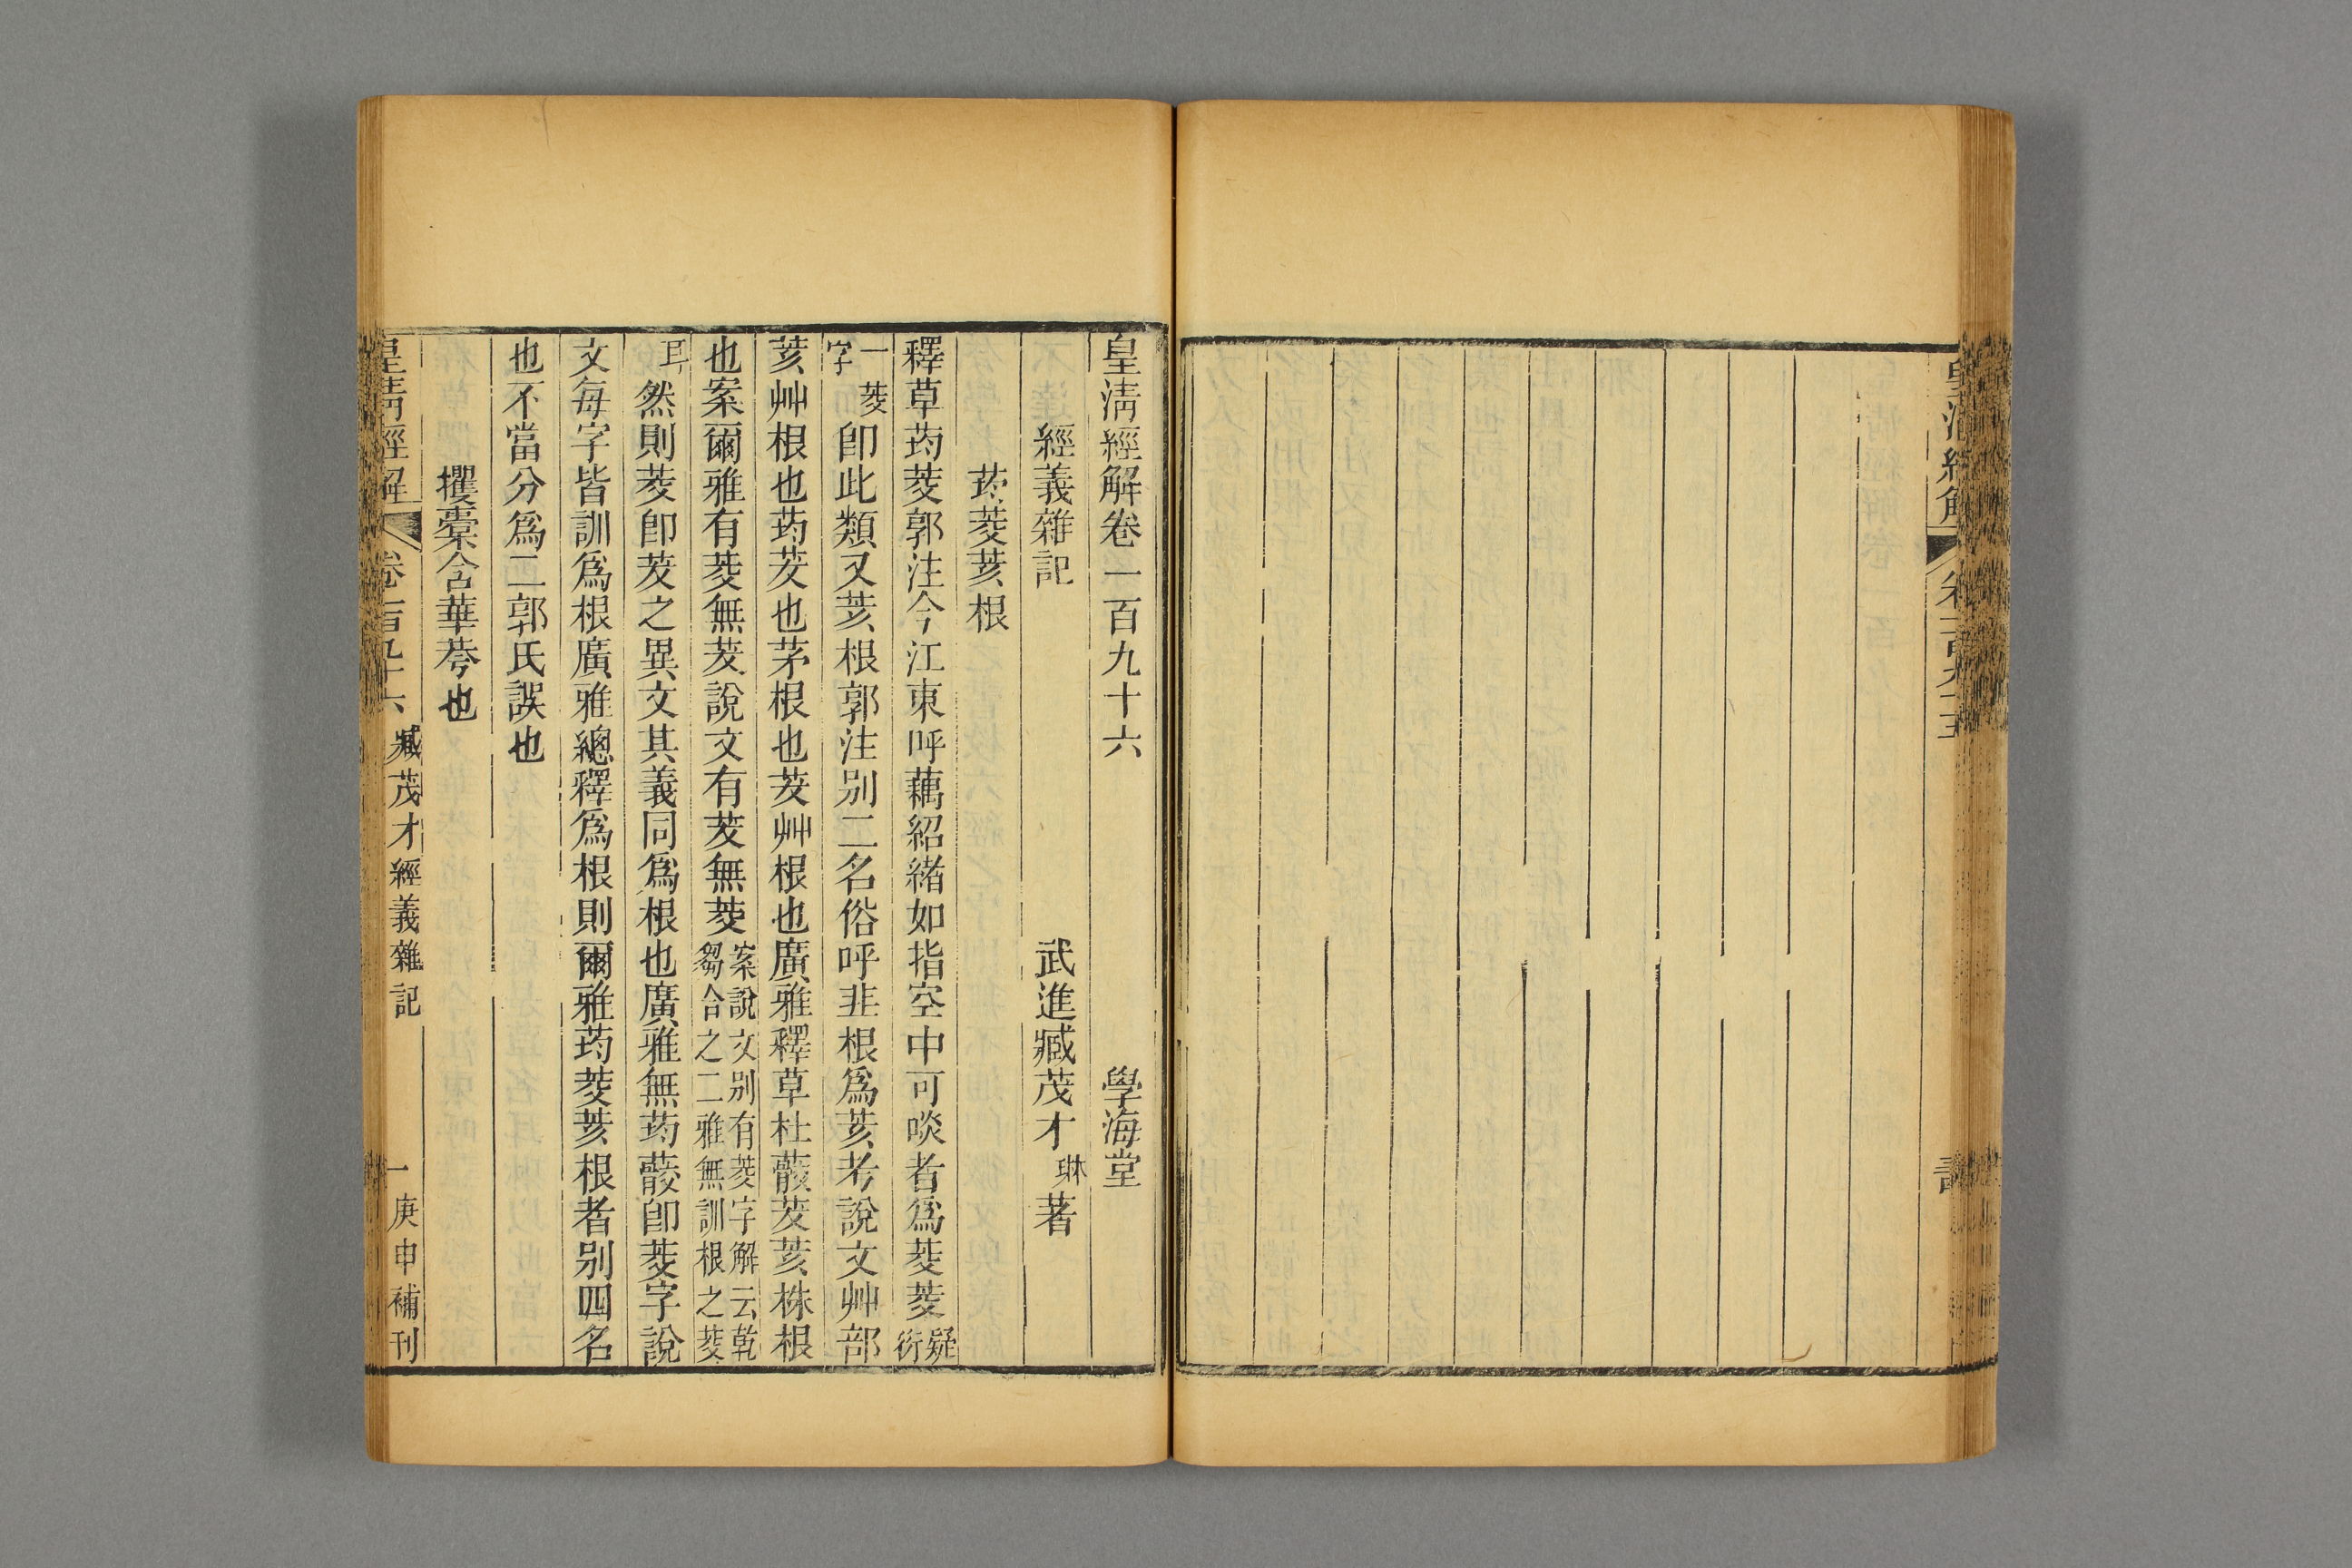 皇清經解
皇清經解卷一百九十六 學海堂
經義雜記 武進臧茂才琳著
菂茭荄根
釋草菂茭郭注今江東呼藕紹緒如指空中可啖者爲茭茭疑衍
一茭字即此類又荄根郭注別二名俗呼韭根爲荄考說文艸部
荄艸根也菂茇也茅根也茇艸根也廣雅釋草杜薂茇荄株根
也案爾雅有茭無茇說文有茇無茭案說文別有茭字解云乾芻合之二雅無訓根之茭
耳然則茭即茇之異文其義同爲根也廣雅無菂薂即茭字說
文每字皆訓爲根廣雅總釋爲根則爾雅菂茭荄根者別四名
也不當分爲二郭氏誤也
攫橐含華荂也
皇清經解 卷一百九十六 臧茂才經義雜記 一 庚申補刊